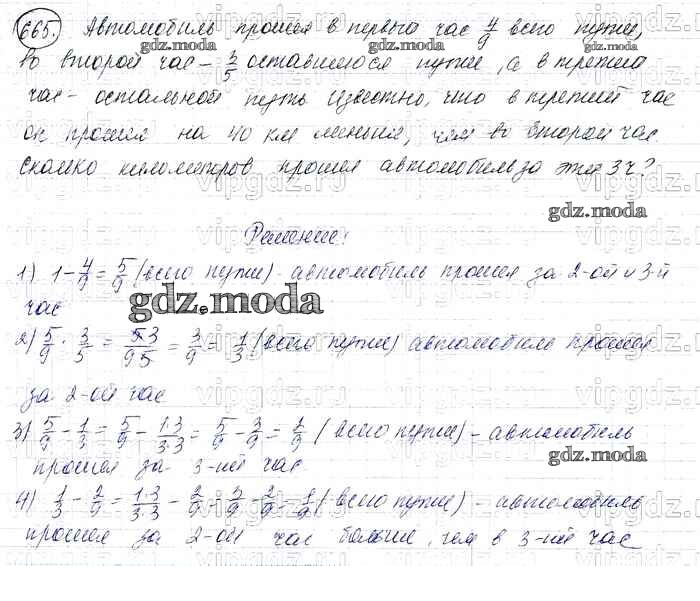 665. Автомобиль прошел в первый час 4/9 всего пути,
во второй час - 3/5 оставшегося пути, а в третий
час - остальной путь. Известно, что в третий час
он прошел на 40 км меньше, чем во второй час.
Сколько километров прошел автомобиль за эти 3ч?
Решение:
1) 1 - 4/9 = 5/9 (всего пути) - автомобиль прошел за 2-ой и 3-й
час
2) 5/9 · 3/5 = 5·3/9·5 = 3/9 = 1/3 (всего пути) автомобиль прошел
за 2-ой час
3) 5/9 - 1/3 = 5/9 - 1·3/3·3 = 5/9 - 3/9 = 2/9 (всего пути) - автомобиль
прошел за 3-ий час
4) 1/3 - 2/9 = 1·3/3·3 - 2/9 = 3/9 - 2/9 = 1/9 (всего пути) - автомобиль
прошел за 2-ой час больше, чем в 3-ий час
gdz.moda
vipgdz.ru